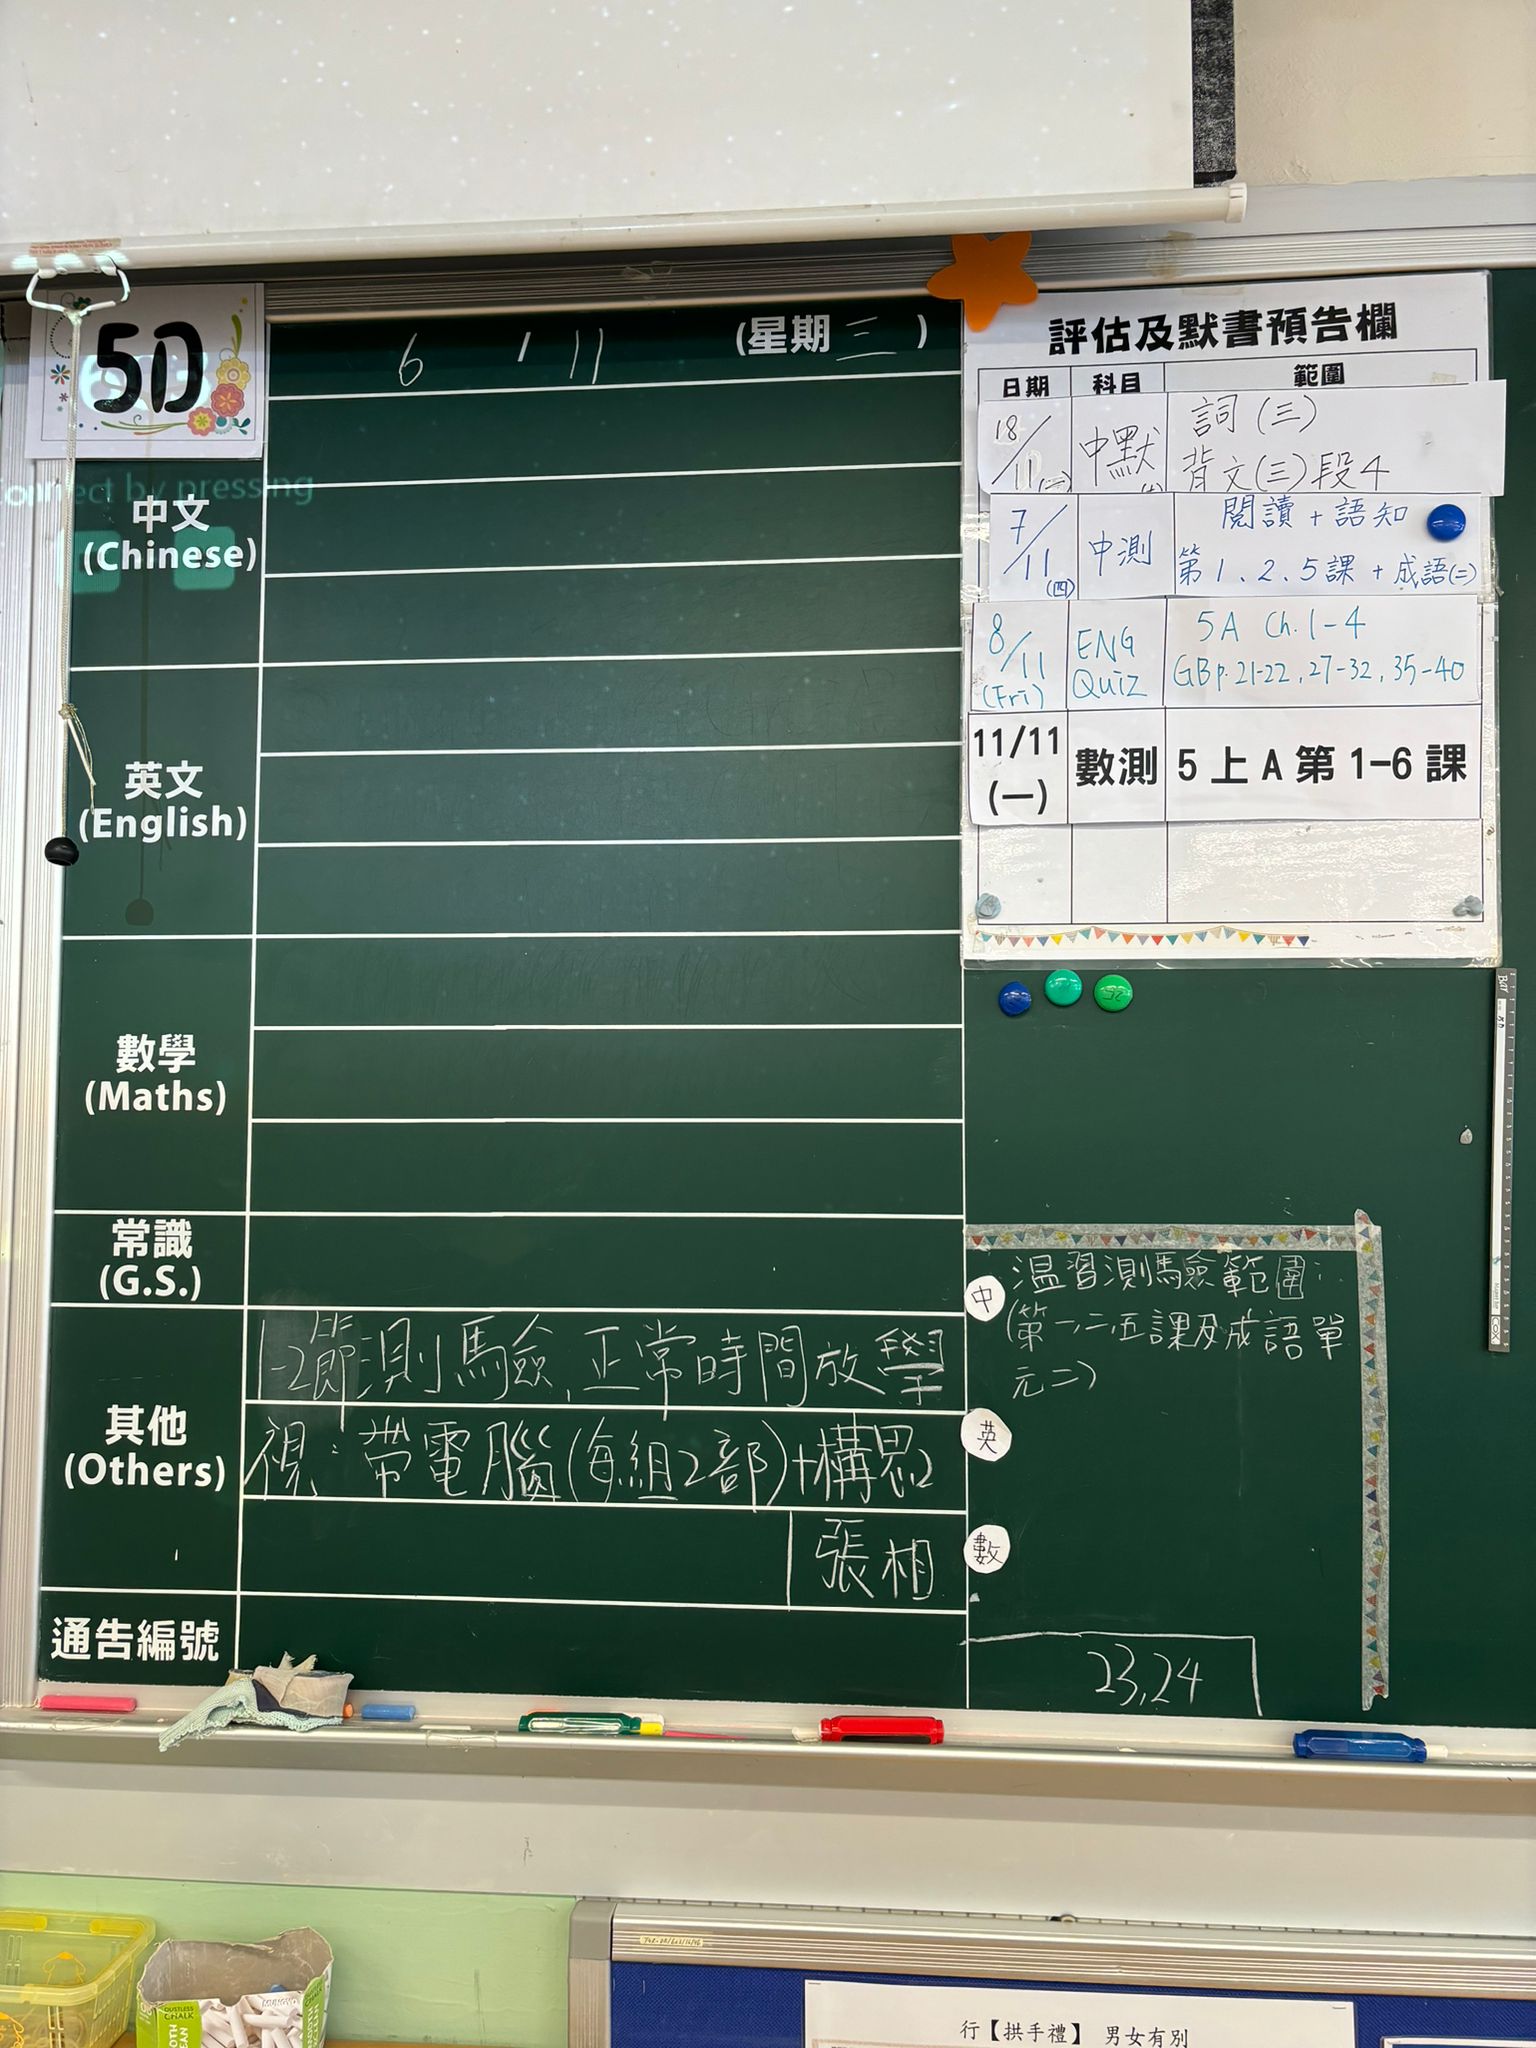 5D
6 / 11 (星期三)
onnect by pressing
中文
(Chinese)
英文
(English)
數學
(Maths)
常識
(G.S.)
其他
(Others)
1-2節測驗,正常時間放學
視:帶電腦(每組2部)+構思2
張相
通告編號
評估及默書預告欄
日期 科目 範圍
18/11 中默 詞(三)
背文(三)段4
7/11 (四) 中測 閱讀+語知
第1、2、5課+成語(二)
8/11 (Fri) ENG QUIZ 5A Ch.1-4
GB p.21-22, 27-32, 35-40
11/11 (一) 數測 5上A第1-6課
中 温習測驗範圍:
(第一,二,五課及成語單
元二)
英
數
23,24
DUSTLESS CHALK
MUNGYO
行【拱手禮】 男女有別